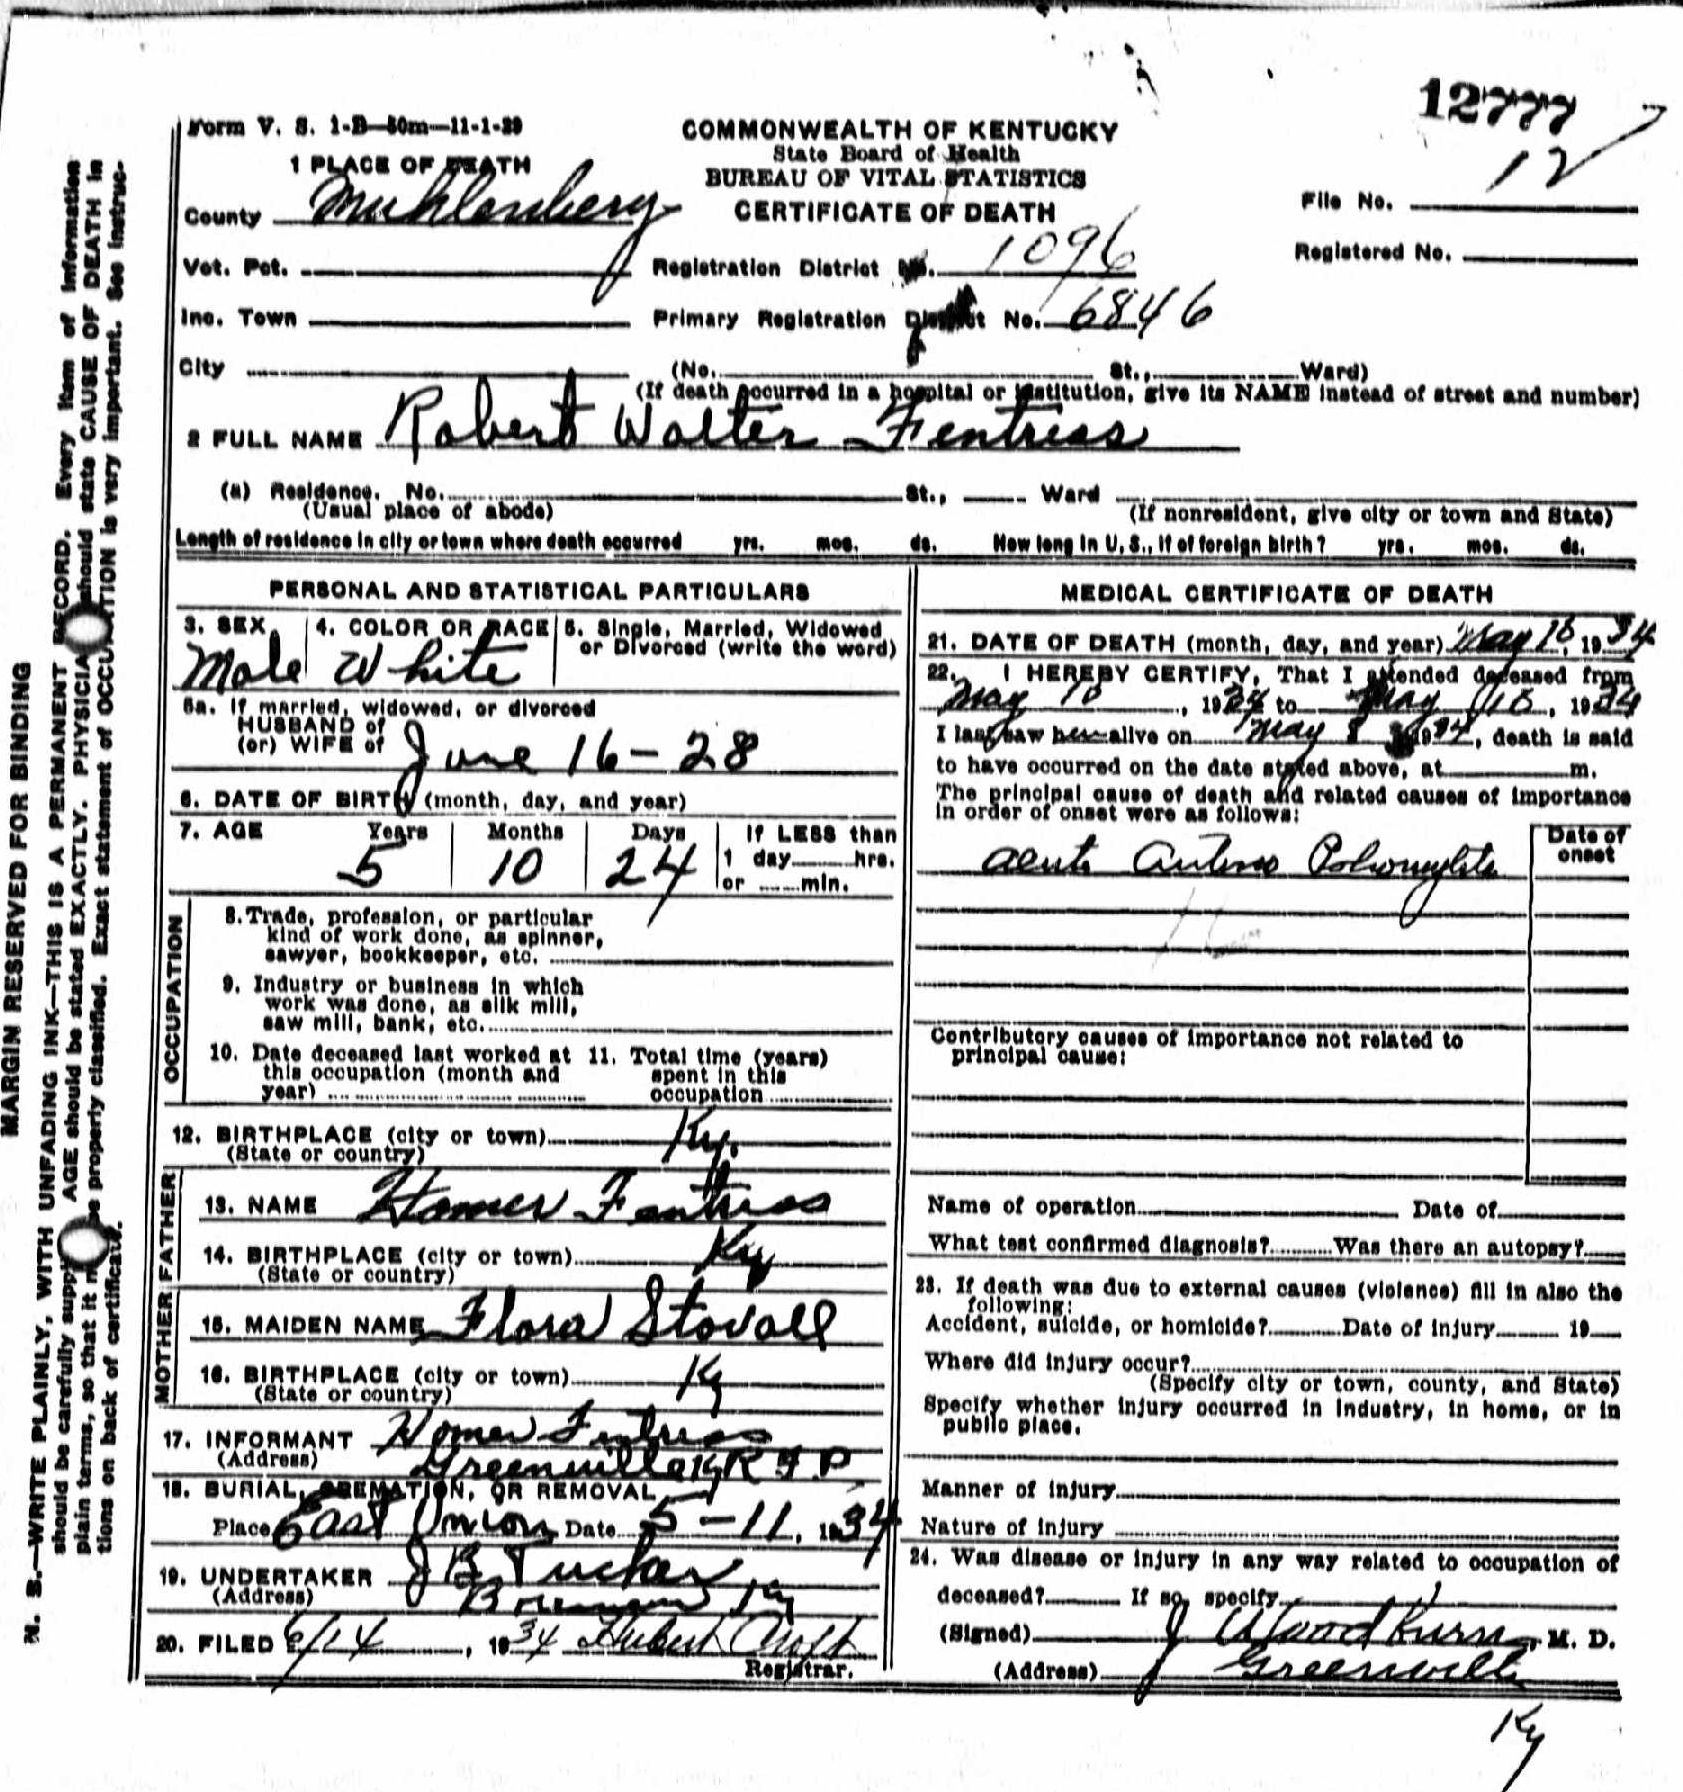 12777
Form V. S. 1-B—50m—11-1-29
COMMONWEALTH OF KENTUCKY
State Board of Health
BUREAU OF VITAL STATISTICS
CERTIFICATE OF DEATH
1 PLACE OF DEATH
County Muhlenberg
File No. 12
Vot. Pct. Registration District No. 1096
Registered No.
Inc. Town Primary Registration District No. 6846
City (No. St., Ward)
(If death occurred in a hospital or institution, give its NAME instead of street and number)
2 FULL NAME Robert Walter Fentress
(a) Residence. No. St., Ward
(Usual place of abode) (If nonresident, give city or town and State)
Length of residence in city or town where death occurred yrs. mos. ds. How long in U. S., if of foreign birth? yrs. mos. ds.
PERSONAL AND STATISTICAL PARTICULARS
3. SEX 4. COLOR OR RACE 5. Single, Married, Widowed
or Divorced (write the word)
Male White
5a. If married, widowed, or divorced
HUSBAND of
(or) WIFE of
June 16-28
6. DATE OF BIRTH (month, day, and year)
7. AGE Years Months Days If LESS than
5 10 24 1 day hrs.
or min.
OCCUPATION
8. Trade, profession, or particular
kind of work done, as spinner,
sawyer, bookkeeper, etc.
9. Industry or business in which
work was done, as silk mill,
saw mill, bank, etc.
10. Date deceased last worked at 11. Total time (years)
this occupation (month and spent in this
year) occupation
12. BIRTHPLACE (city or town) Ky.
(State or country)
FATHER
13. NAME Homer Fentress
14. BIRTHPLACE (city or town) Ky
(State or country)
MOTHER
15. MAIDEN NAME Flora Stovall
16. BIRTHPLACE (city or town) Ky
(State or country)
17. INFORMANT Homer Fentress
(Address) Greenville Ky R F D
18. BURIAL, CREMATION, OR REMOVAL
Place East Union Date 5-11, 1934
19. UNDERTAKER J B Tucker
(Address) Ky
20. FILED 6/14, 1934 Hubert
Registrar.
MEDICAL CERTIFICATE OF DEATH
21. DATE OF DEATH (month, day, and year) May 10, 1934
22. I HEREBY CERTIFY, That I attended deceased from
May 10, 1934 to May 10, 1934
I last saw alive on May 8 1934, death is said
to have occurred on the date stated above, at m.
The principal cause of death and related causes of importance
in order of onset were as follows:
Date of
onset
acute
16
Contributory causes of importance not related to
principal cause:
Name of operation Date of
What test confirmed diagnosis? Was there an autopsy?
23. If death was due to external causes (violence) fill in also the
following:
Accident, suicide, or homicide? Date of injury 19
Where did injury occur?
(Specify city or town, county, and State)
Specify whether injury occurred in industry, in home, or in
public place.
Manner of injury
Nature of injury
24. Was disease or injury in any way related to occupation of
deceased? If so, specify
(Signed) J Woodburn, M. D.
(Address) Greenville
Ky
MARGIN RESERVED FOR BINDING
N. B.—WRITE PLAINLY, WITH UNFADING INK—THIS IS A PERMANENT RECORD. Every item of information
should be carefully AGE should be stated EXACTLY. PHYSICIA should state CAUSE OF DEATH in
plain terms, so that it be properly classified. Exact statement of OCCUPATION is very important. See instruc-
tions on back of certificate.